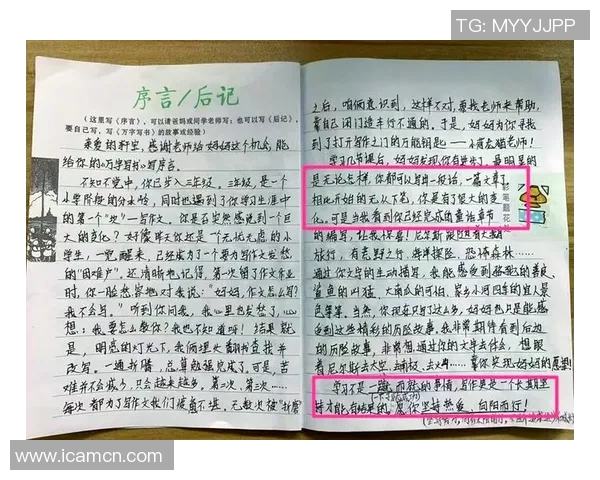 TG: MYYJJPP
序言/后记
(这里写《序言》,可以请爸妈或同学老师写;也可以写《后记》,
要自己写,写《万字写书》的故事或经验)
亲爱的轩宝,感谢老师给妈妈这个机会,能
给你的《万字写书》写序言。
不知不觉中,你已步入三年级。三年级,是一个
小学阶段的分水岭,同时也遇到了你学习生涯中
的第一个"坎"—写作文。你是否突然感觉到一个巨
大的变化?好像昨天你还是一个无忧无虑的小
学生,一觉醒来,已经成为了一个要为写作文发愁
的"困难户"。还清晰地记得,第一次留了作文作业
时,你一脸愁容地对我说:"妈妈,作文怎么写?
我不会写。"听到你问我,我心里也发愁了,心
想,我要怎么教你?我也不知道呀!结果就
是,明亮的灯光下,我俩埋头翻书查找并
改写。一通折腾,总算勉强完成了,可是,苦
难并不会减少,只会越来越多。第二次、第三次……
每次都为了写作文我们疲惫不堪。无数次被"折磨
之后,咱俩意识到,这样不对,要找老师来帮助,
靠自己闭门造车行不通的。于是,妈妈为你寻找
到了打开写作之门的万能钥匙——
学习几节课后,妈妈发现你有进步了。最明显的
是无论怎样,你都可以写出一段话,一篇文章了,
相比开始的无从下笔,你是有了很大的变
化。可是当我看到你已经完成的童话章节
的编写,让我惊喜!尼尔斯
旅行,有荒野之行、海洋探险、恐怖森林……
通过你文字的生动描写,我能感受到
鲨鱼的凶猛、大南瓜的可怕、家乡小河四季的宜人景
色等等。当然,你现在只写了这么多,妈妈也只是能感
受到这些精彩的历险故事,我非常期待看到后边
的历险故事,非常想通过你的文字去什么,想跟
着尼尔斯去太空、去
学习不是一蹴而就的事情,写作更是一个长期坚
持才能有结果的
愿你坚持热爱,向阳而行!
www.icamcn.com